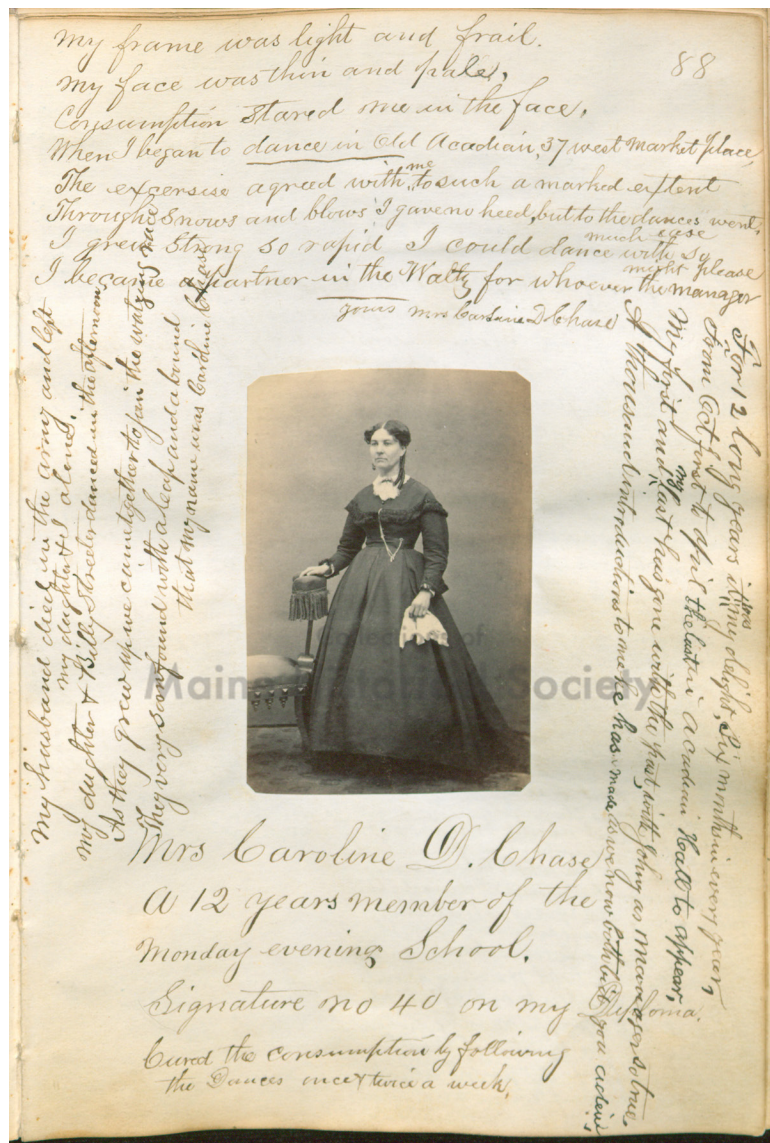 88
My frame was light and frail.
My face was thin and pale,
Consumption Stared me in the face,
When I began to dance in Old Acadian, 37 west Market place,
The excersise agreed with me to such a marked extent
Through Snows and blows I gave no heed, but to the dances went,
I grew Strong so rapid I could dance with so much ease
I became a partner in the Waltz for whoever the manager might please
yours Mrs Caroline D. Chase
My husband died in the army and left
my dughter & I alone.
my dughter & Billy Streety danced in the afternoon
As they grew up we came together to join the waltzing race
They very soon found with a leap and a bound
that my name was Caroline Chase
For 12 long years it was my delight, Six months in every year,
From Oct first to April the last in Acadian Hall to appear,
My first and my last has gone with the past, with John as Manager so true
A thousand introductions to me he has made as we now both bid you adieu
collections of
Maine Historical Society
Mrs Caroline D. Chase
A 12 years member of the
Monday evening School.
Signature no 40 on my Diploma.
Cured the consumption by following
the Dances once & twice a week.